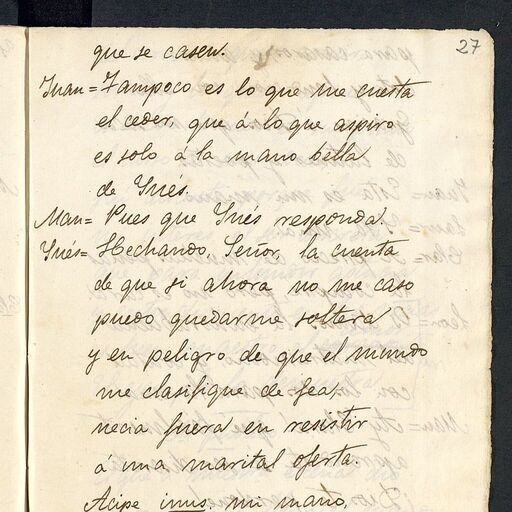 27
que se casen.
Juan= Tampoco es lo que me cuesta
el ceder, que á lo que aspiro
es solo á la mano bella
de Inés.
Man= Pues que Inés responda.
Inés= Hechando, Señor, la cuenta
de que si ahora no me caso
puedo quedarme soltera
y en peligro de que el mundo
me clasifique de fea,
necia fuera en resistir
á una marital oferta.
Acipe inus, mi mano,